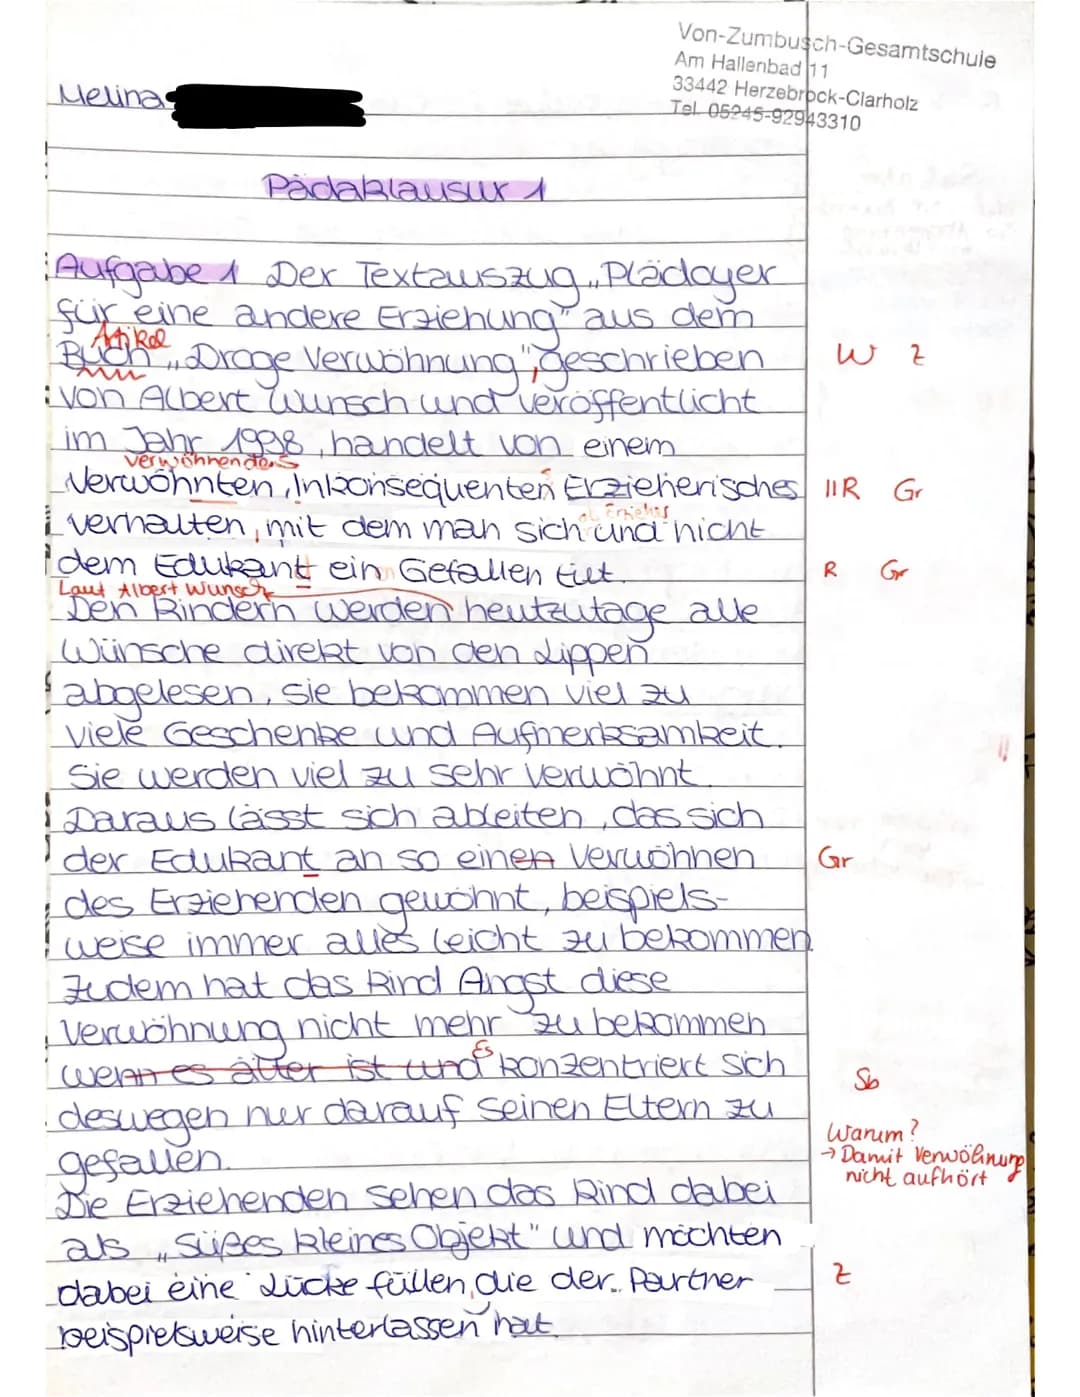 Von-Zumbusch-Gesamtschule
Am Hallenbad 11
33442 Herzebrock-Clarholz
Tel. 05245-92943310
Melina
Pädaklausur 1
Aufgabe 1 Der Textauszug „Plädoyer
für eine andere Erziehung" aus dem
Artikel
Buch „Droge Verwöhnung", geschrieben W Z
von Albert Wunsch und veröffentlicht
im Jahr 1998, handelt von einem
verwöhnendes
Verwöhnten, Inkonsequenten Erzieherisches IIR Gr
s
al. Erzieher
verhalten, mit dem man sich und nicht
dem Edukant ein Gefallen tut. R Gr
en
Laut Albert Wunsch
Den Kindern werden heutzutage alle
Wünsche direkt von den Lippen
abgelesen, sie bekommen viel zu
viele Geschenke und Aufmerksamkeit. !!
Sie werden viel zu sehr verwöhnt.
Daraus lässt sich ableiten, das sich
der Edukant an so einen Verwöhnen Gr
des Erziehenden gewöhnt, beispiels-
weise immer alles leicht zu bekommen.
Zudem hat das Kind Angst diese
Verwöhnung nicht mehr zu bekommen
Es
wenn es älter ist und konzentriert sich Sb
deswegen nur darauf seinen Eltern zu
gefallen.
Warum?
→ Damit Verwöhnung
nicht aufhört
Die Erziehenden sehen das Kind dabei
als „Süßes kleines Objekt" und möchten
dabei eine Lücke füllen, die der Partner Z
beispielsweise hinterlassen hat.